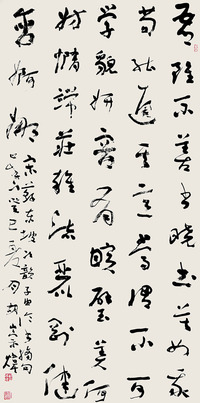 吾雖不善書曉書莫如我
苟能通其意常謂不可
學貌妍容有顰璧美何
妨橢端莊雜流麗剛健
含婀娜
宋蘇東坡次韻子由論書摘句
癸巳夏月胡崇煒